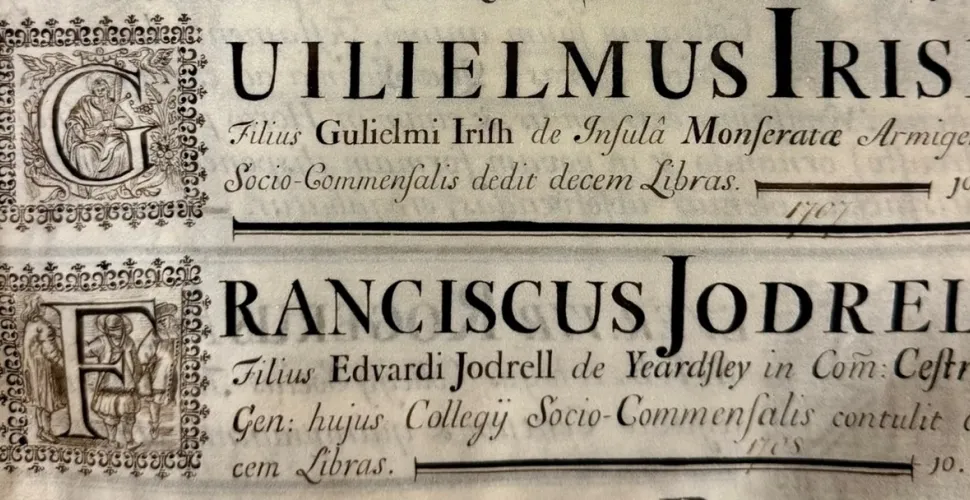 GUILIELMUS IRIS
Filius Gulielmi Iriſh de Inſulâ Monſeratæ Armige
Socio-Commenſalis dedit decem Libras.
1707
FRANCISCUS JODREL
Filius Edvardi Jodrell de Yeardſley in Com̃: Ceſtr
Gen: hujus Collegij Socio-Commenſalis contulit
1708
cem Libras. 10.